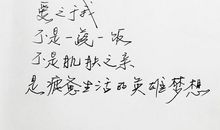 爱之于我
不是一蔬一饭
不是肌肤之亲
是疲惫生活的英雄梦想